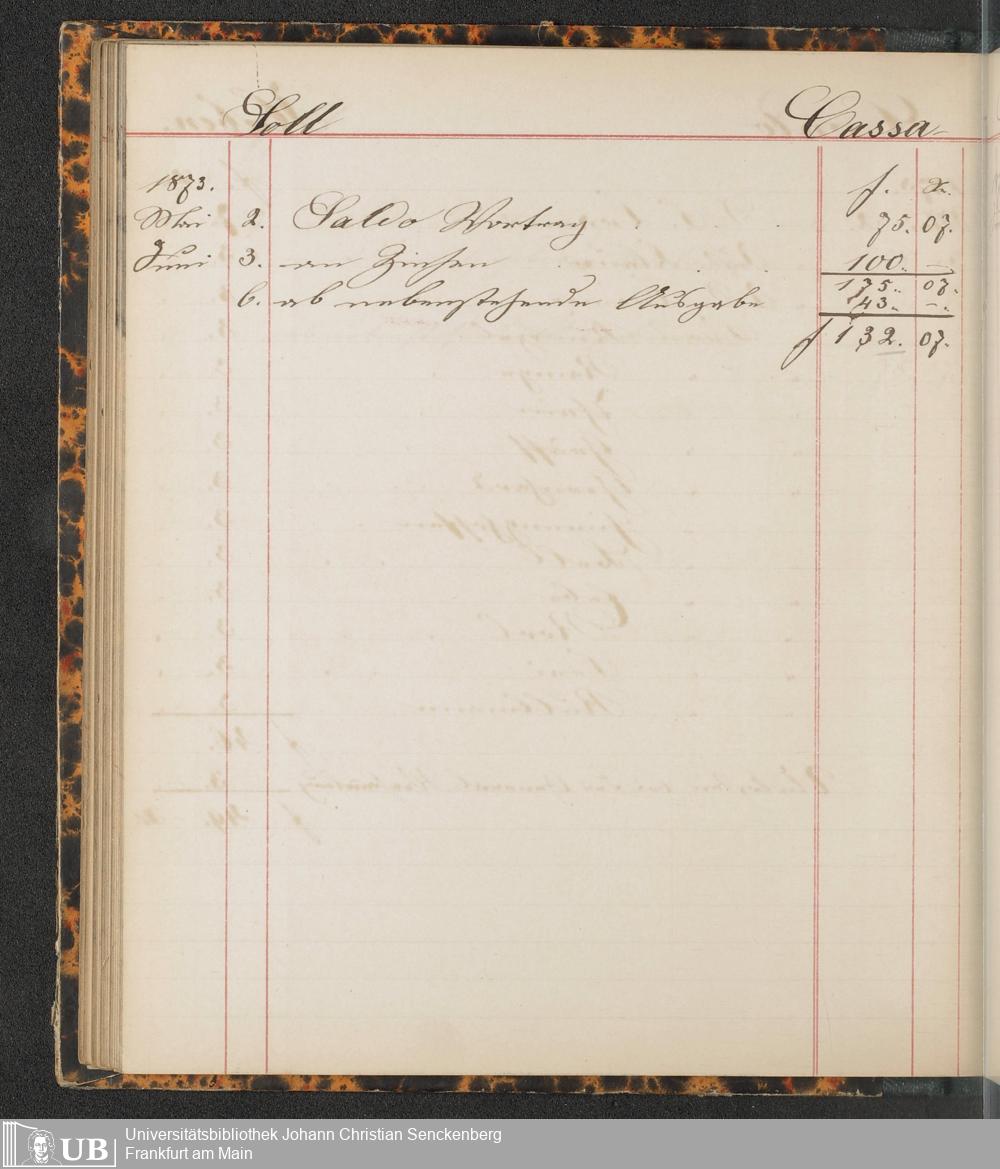 Soll Cassa
1873. f. x.
Mai 2. Saldo Vortrag 75. 07.
Juni 3. an Zinsen 100. —
175. 07.
6. ab nebenstehende Ausgabe 43. —.
f 132. 07.
UB
Universitätsbibliothek Johann Christian Senckenberg
Frankfurt am Main